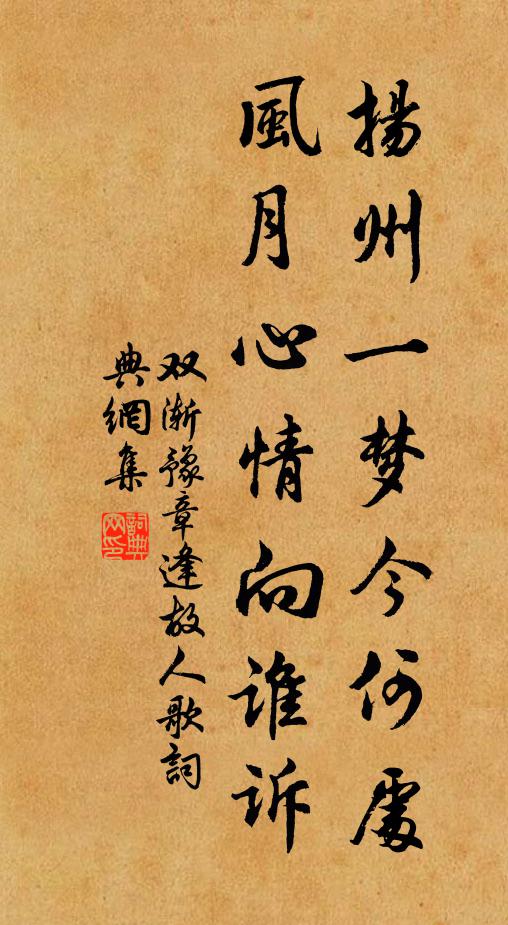 揚州一梦今何處
風月心情向谁訴
双渐豫章逢故人歌詞
典網集
詞典网印